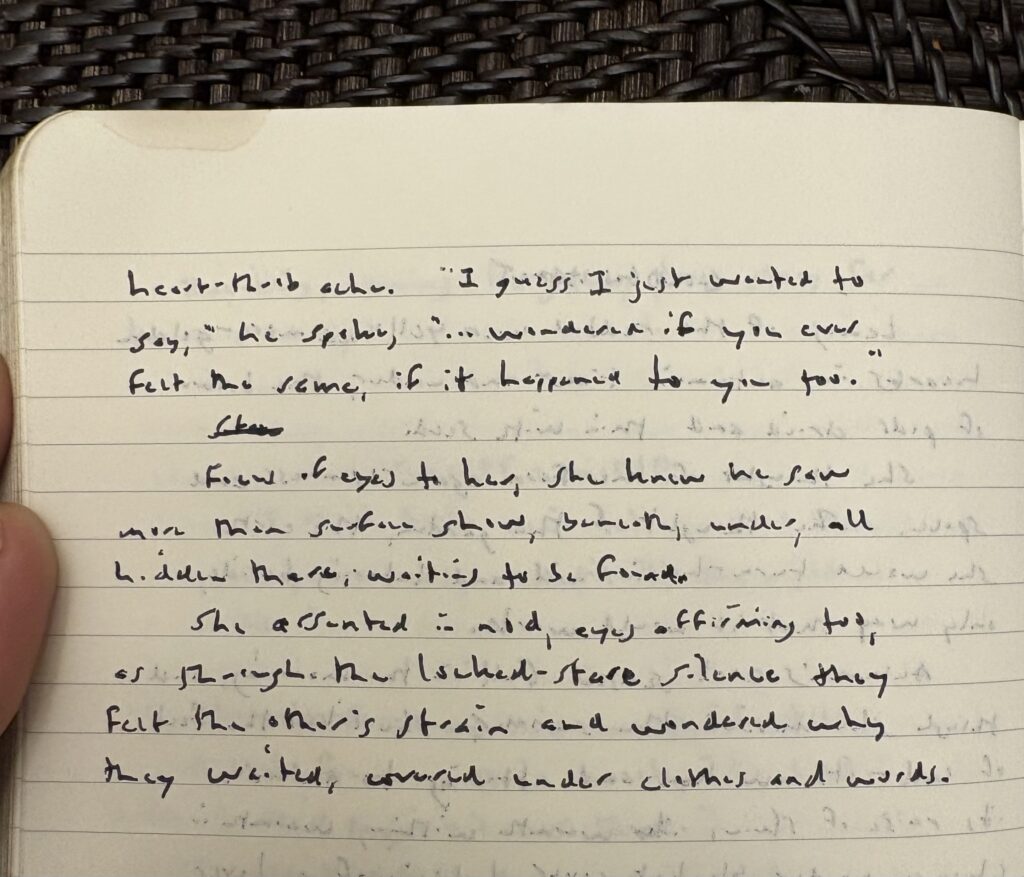 heart-throb ache. "I guess I just wanted to
say," he spoke, "... wondered if you ever
felt the same, if it happened to you too."
Focus of eyes to her, she knew he saw
more than surface show, beneath, under, all
hidden there, waiting to be found.
She assented in nod, eyes affirming too,
as through the locked-stare silence they
felt the other's strain and wondered why
they waited, covered under clothes and words.